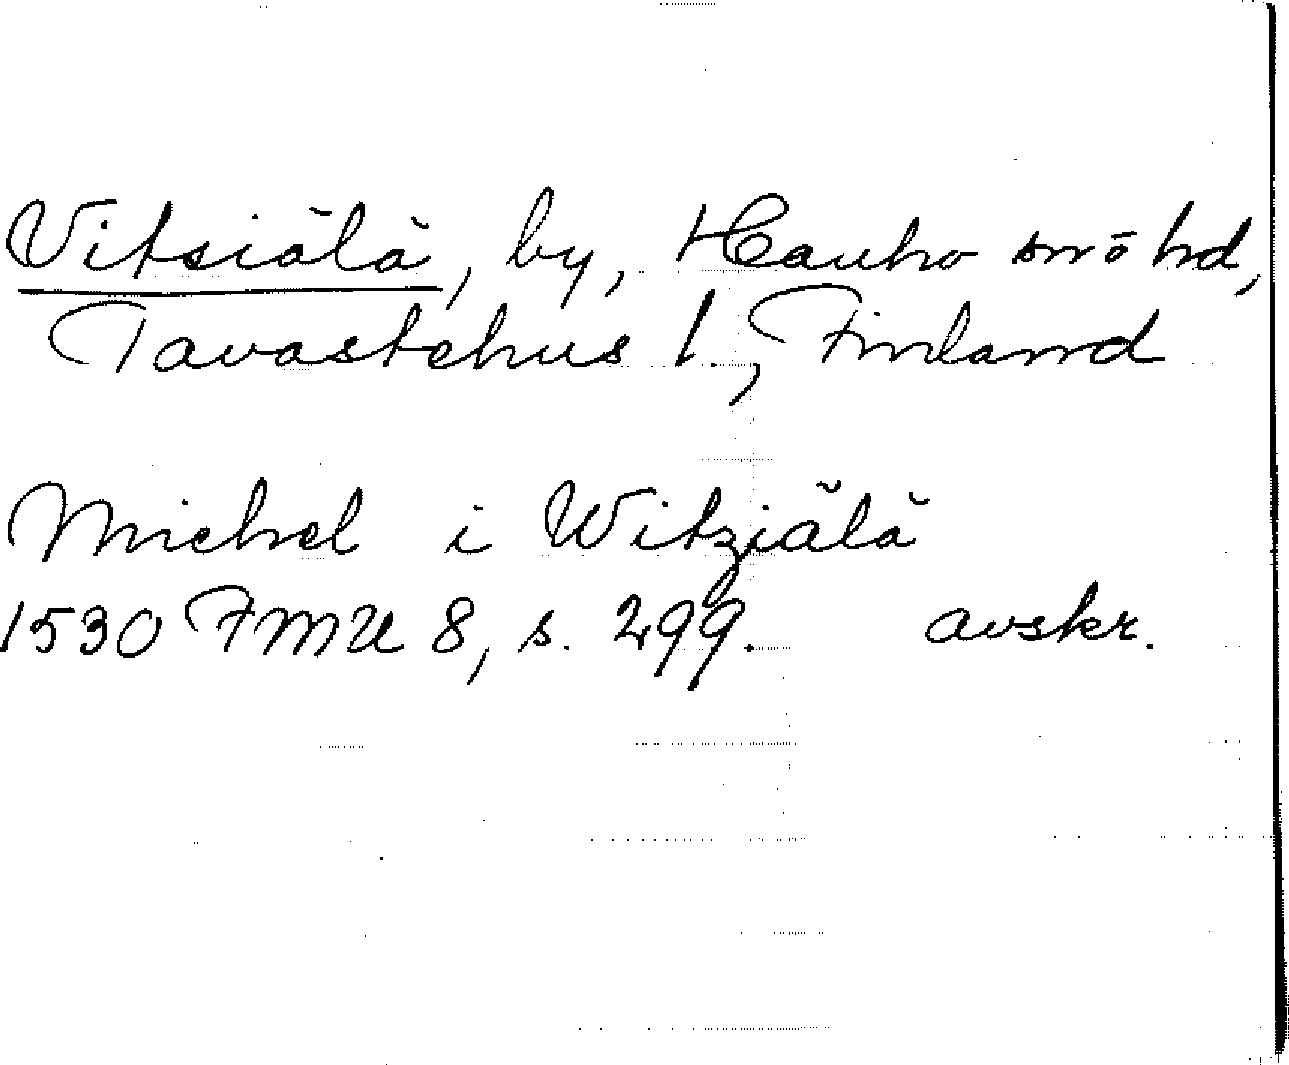 Vitsiälä, by, Hauho sn o hd,
Tavastehus l., Finland
Michel i Witziälä
1530 FMU 8, s. 299. avskr.